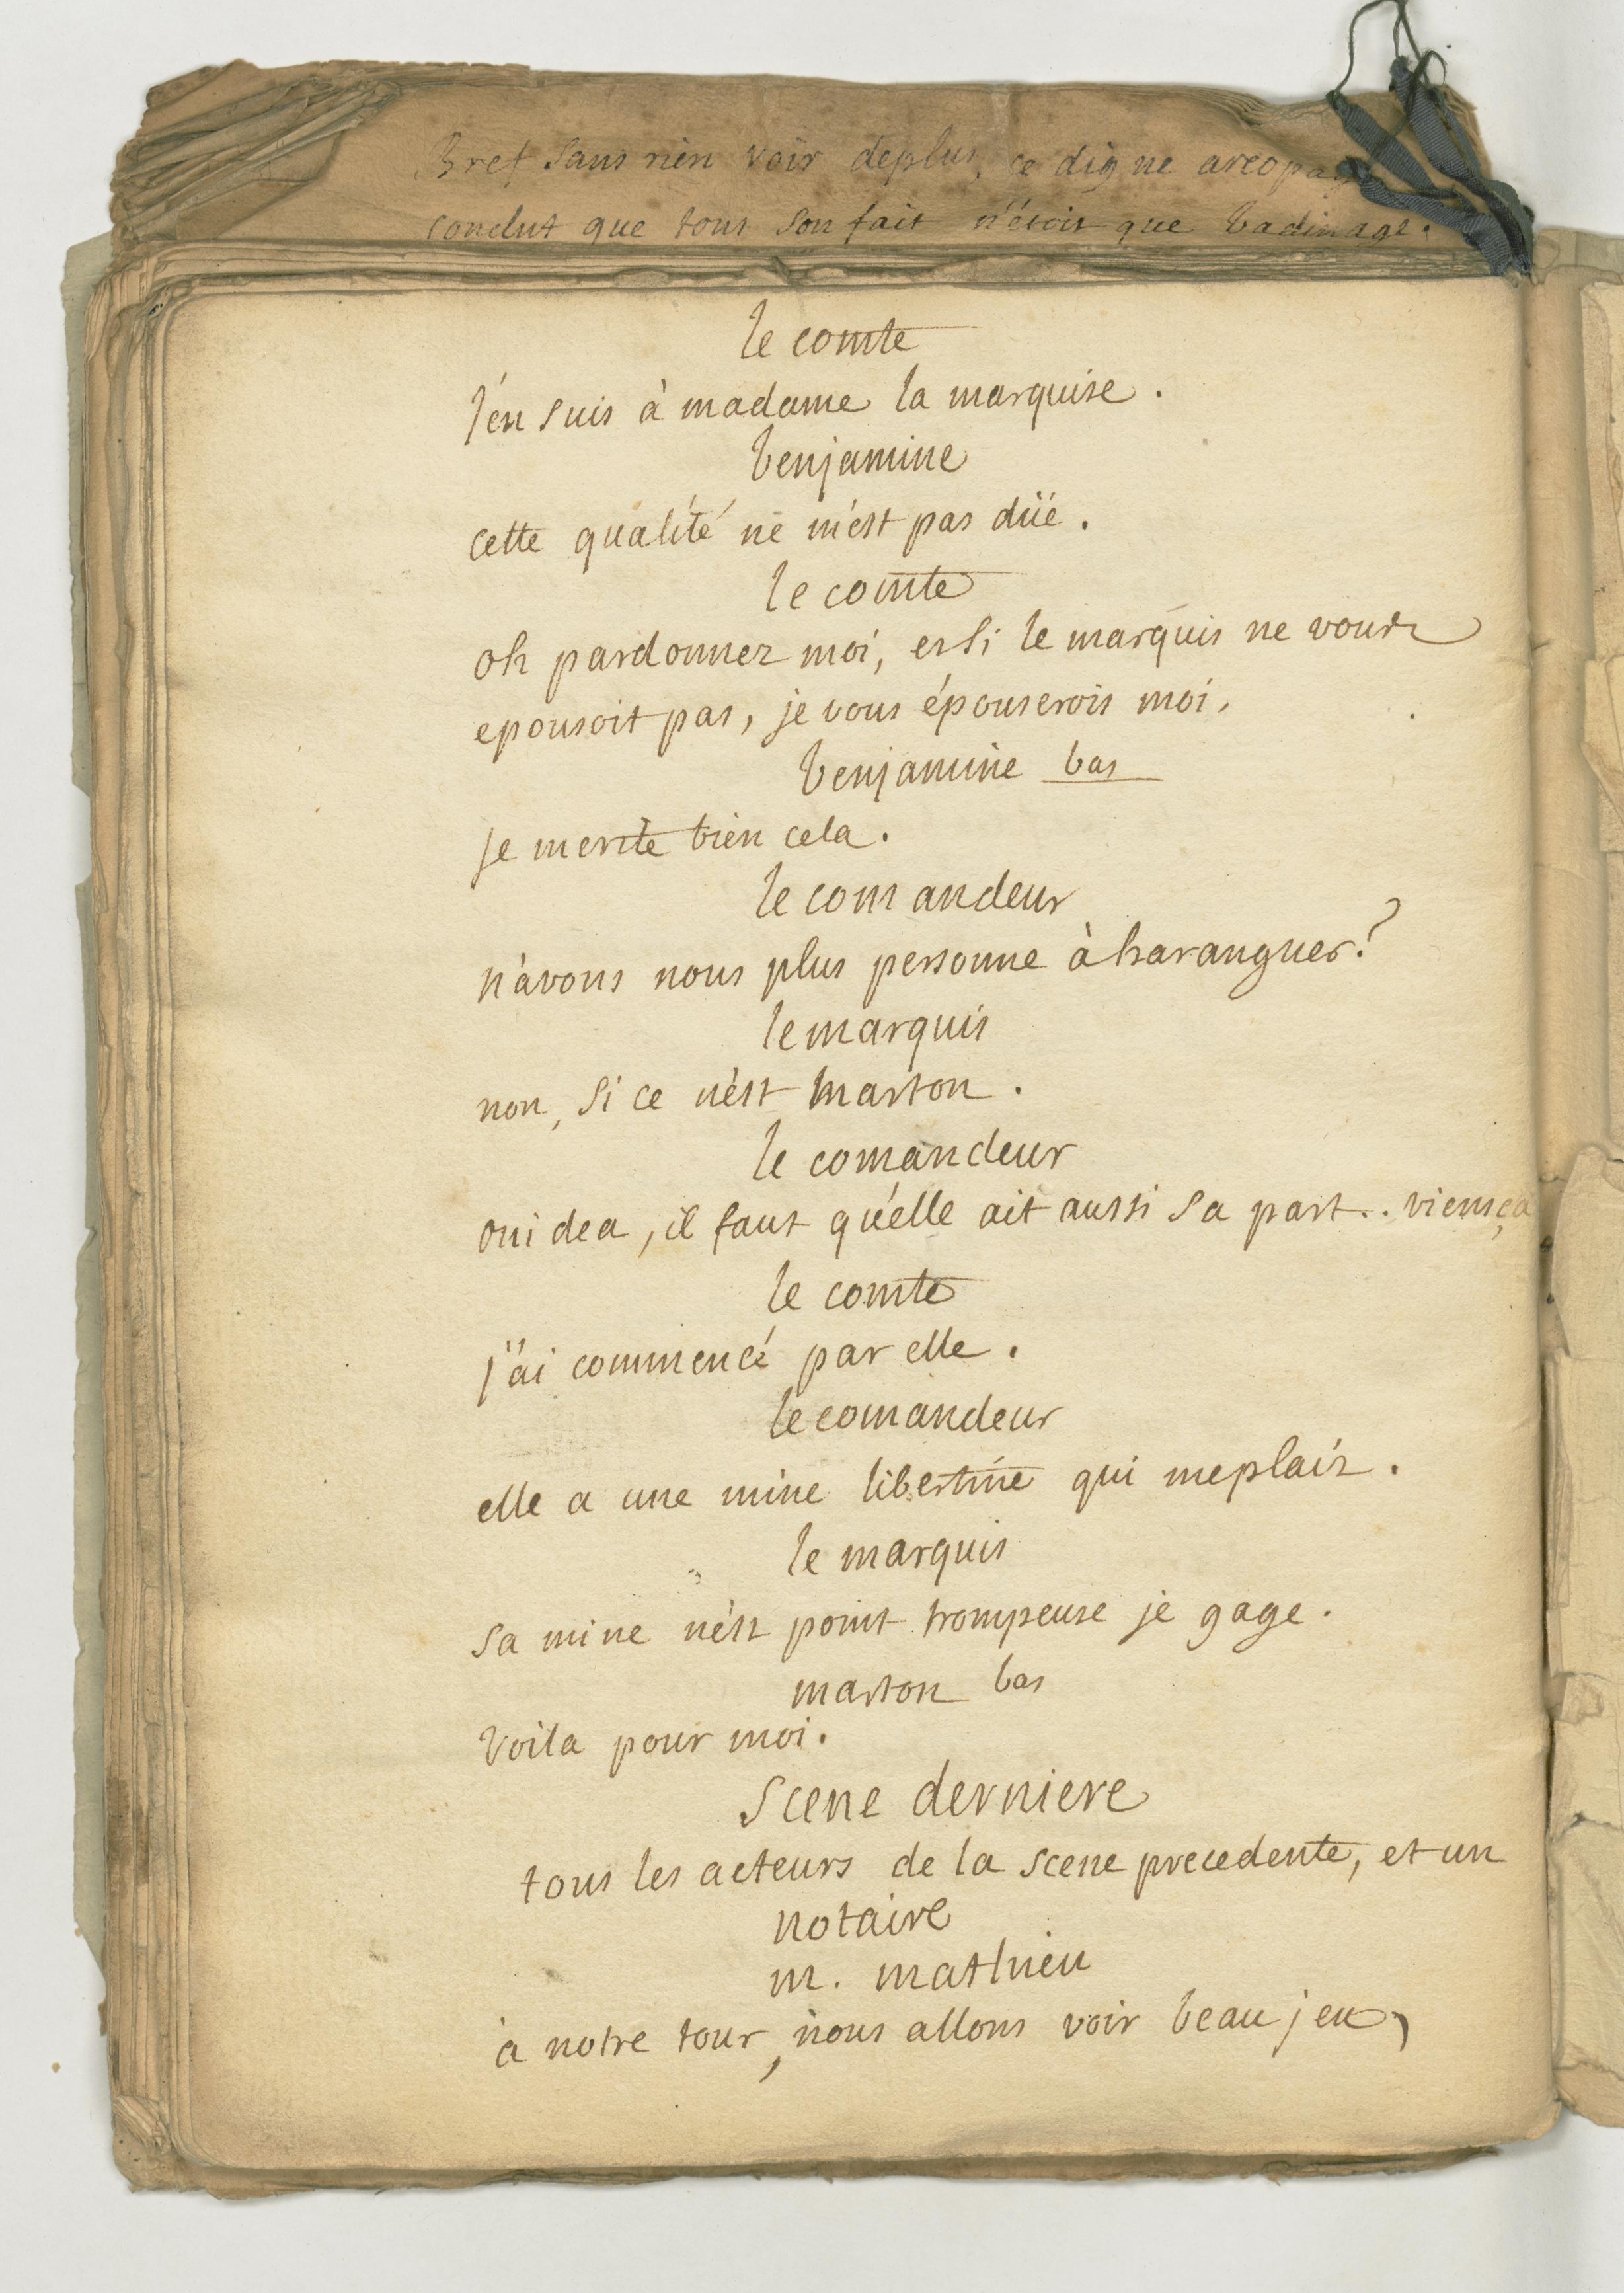 Bref sans rien voir deplus, ce digne areopage
conclut que tout son fait n'étoit que badinage.
le comte
j'en suis à madame la marquise.
benjamine
cette qualité ne m'est pas düé.
le comte
oh pardonnez moi, et si le marquis ne vous
epousoit pas, je vous épouserois moi.
benjamine bas
je merite bien cela.
le comandeur
n'avons nous plus personne à haranguer?
le marquis
non, si ce n'est marton.
le comandeur
oui dea, il faut qu'elle ait aussi sa part.. viens ça
le comte
j'ai commencé par elle.
le comandeur
elle a une mine libertine qui me plait.
le marquis
sa mine n'est point trompeuse je gage.
marton bas
voila pour moi.
scene derniere
tous les acteurs de la scene precedente, et un
notaire
m. mathieu
à notre tour, nous allons voir beau jeu,